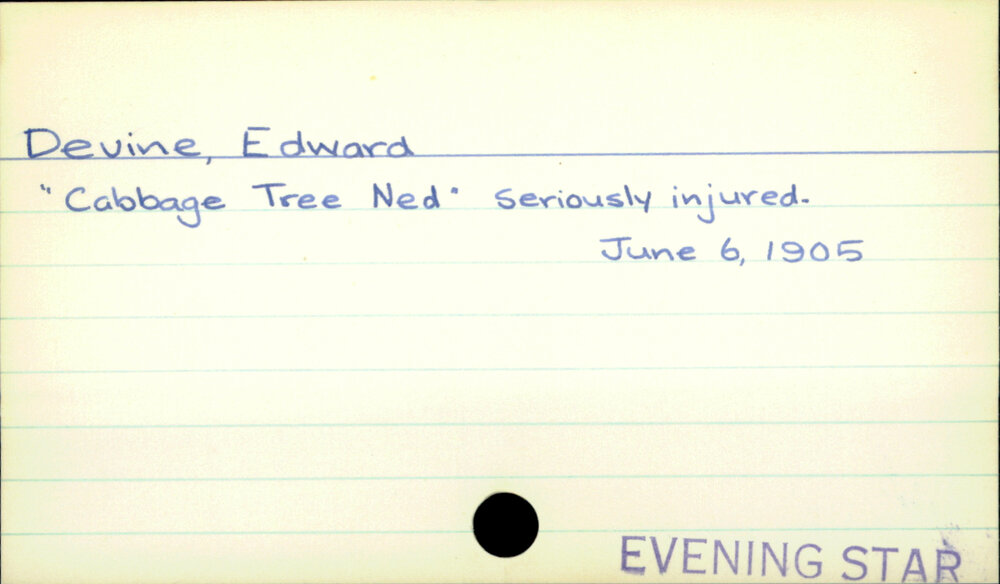 Devine, Edward
"Cabbage Tree Ned" seriously injured.
June 6, 1905
EVENING STAR